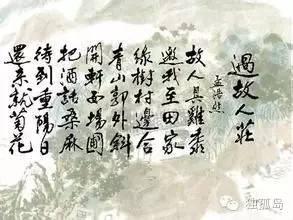 過故人莊
孟浩然
故人具雞黍
邀我至田家
綠樹村邊合
青山郭外斜
開軒面場圃
把酒話桑麻
待到重陽日
還來就菊花
独孤岛